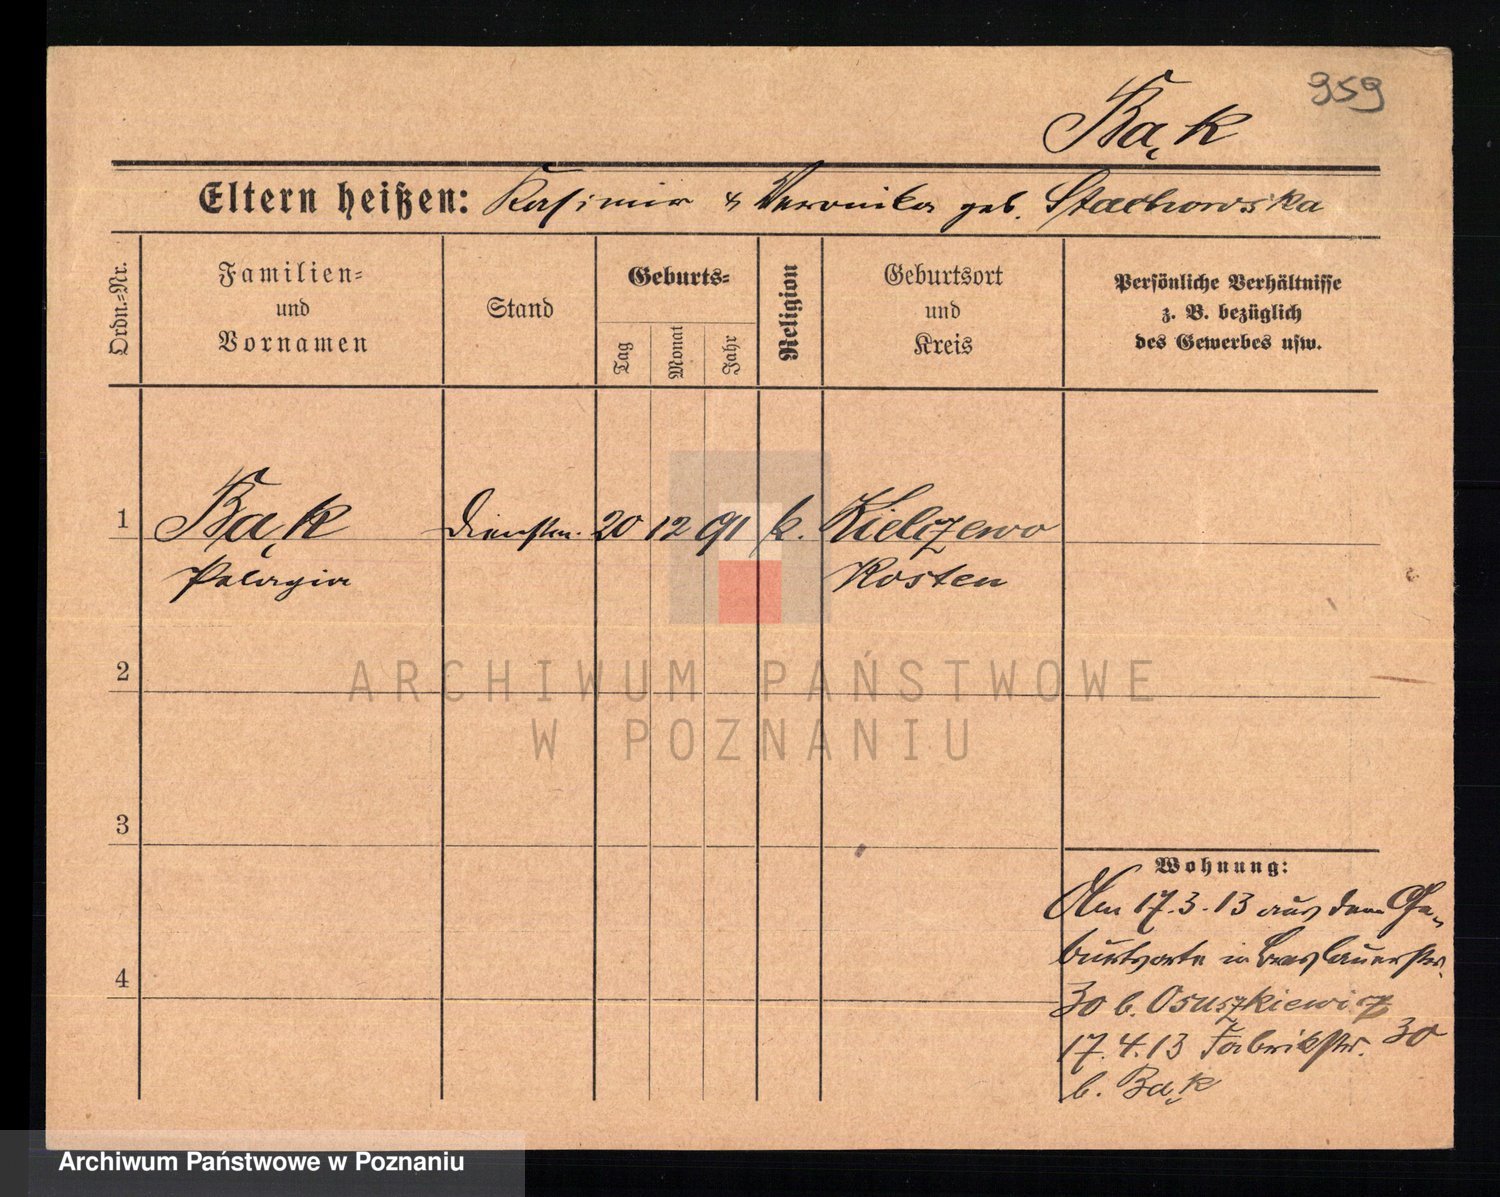 959
Bąk
Eltern heißen: Kasimir & Veronika geb. Stachowska
Ordn.=Nr.
Familien=
und
Vornamen
Stand
Geburts=
Tag
Monat
Jahr
Religion
Geburtsort
und
Kreis
Persönliche Verhältnisse
z. B. bezüglich
des Gewerbes usw.
1 Bąk Dienstm. 20 12 91 k. Kielczewo
Pelagia Kosten
ARCHIWUM PAŃSTWOWE
W POZNANIU
2
3
4
Wohnung:
Am 17.3.13 aus dem Ge-
burtsorte in Breslauerstr.
30 b. Osuszkiewicz
17.4.13 Fabrikstr. 30
b. Bąk
Archiwum Państwowe w Poznaniu